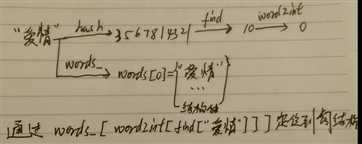 "爱情" hash 3567814321 find 10 word2int 0
words_ words[0]={"爱情"
...
}结构体
通过 words_[word2int[find["爱情"]]]定位到词结构